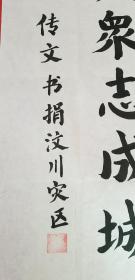 眾志成城
传文书捐汶川灾区